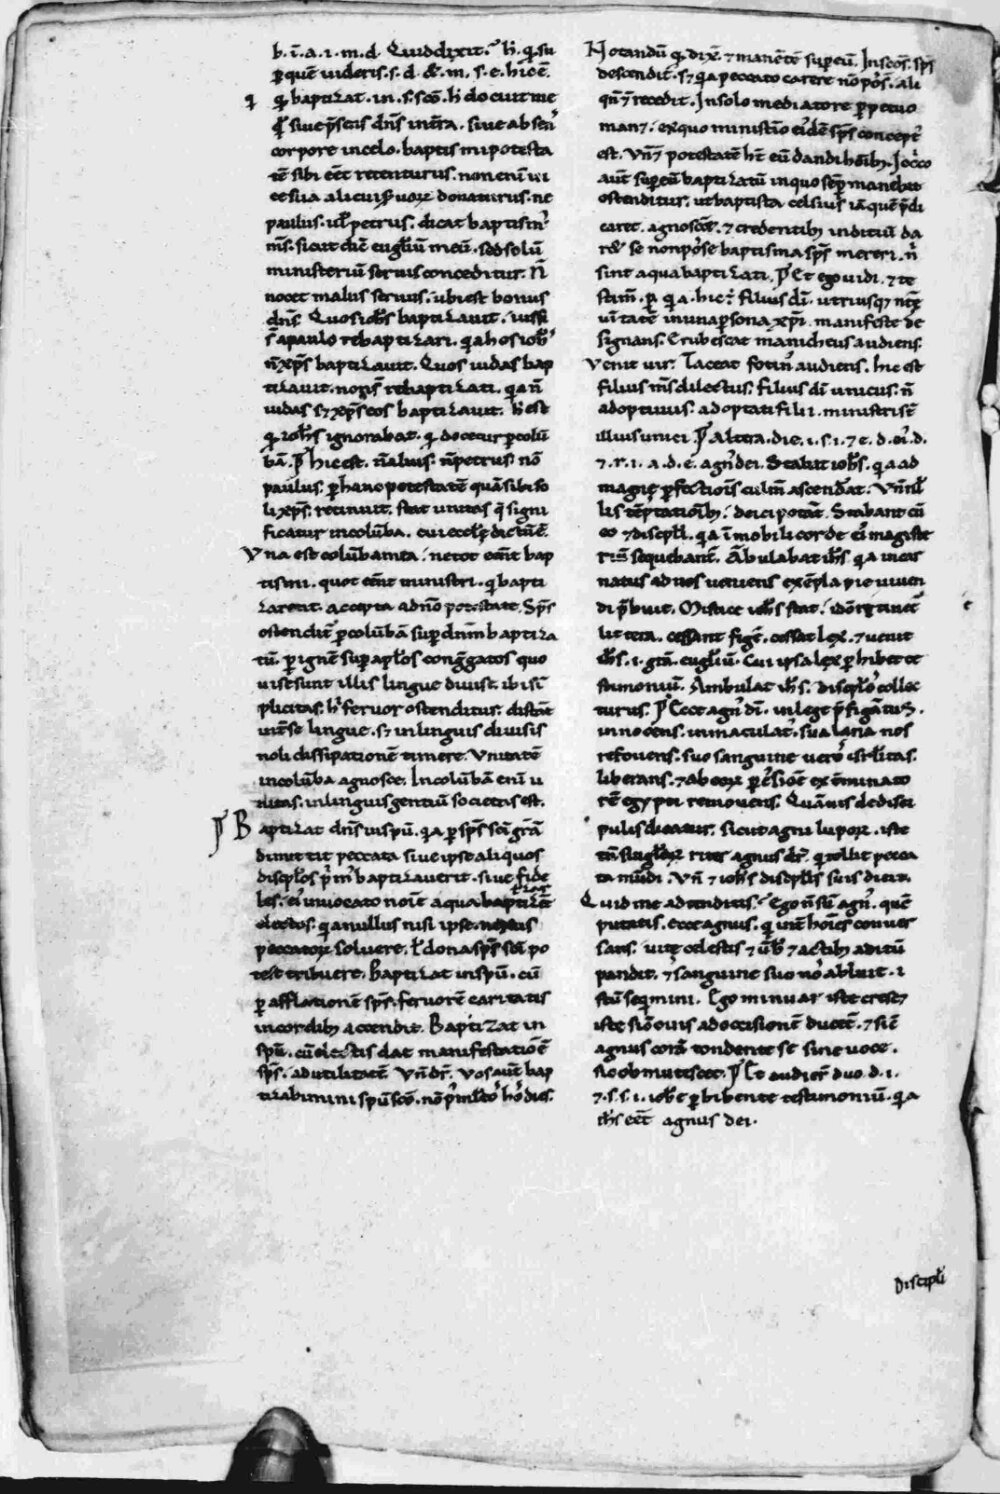 b. ī. a. i. m. d. Quid dixit. h̄. q̄. sup
ꝑ quē uideris. s. d. &. m. s. e. hic ē.
q̄ baptizat. in. s. scō. h̄ docuit me
qđ siue p̄sens dn̄s in tr̄a. siue absens
corpore in celo. baptismi potesta
tē sibi eēt retenturus. non enī ui
ce sua alicui seruorꝝ donaturus. ne
paulus. uł petrus. dicat baptism̕
m̄s. sicut dic̄ eugłiū meū. sed solū
ministeriū seruis conceditur. N̄
nocet malus seruus. ubi est bonus
dn̄s. Quos ioħs baptizauit. iussi
s̄ a paulo rebaptizari. q̄a hos ioħs
n̄ xp̄s baptizauit. Quos iudas bap
tizauit. non s̄ rebaptizati. q̄a n̄
iudas s; xp̄s eos baptizauit. h̄ est
q̄ ioħs ignorabat. q̄ docetur ꝑ colū
bā. hic est. n̄ alius. n̄ petrus. nō
paulus. ꝑ hanc potestatē quā sibi so
li xp̄s retinuit. stat unitas q̄ signi
ficatur in colūba. cui eccłę dictū ē.
Vna est colūba mea. ne tot eēnt bap
tismi. quot eēnt ministri. q̄ bapti
zarent. accepta a dn̄o potestate. Sp̄s
ostendit̄ ꝑ colūbā sup dn̄m baptiza
tū. ꝑ ignē sup apłos congregatos quo
uisę sunt illis linguę diuisę. ibi sim
plicitas. h̄ feruor ostenditur. distāt
int̄ se linguę. s; in linguis diuisis
noli dissipationē timere. Vnitatē
in colūba agnosce. In colūba enī u
nitas. in linguis gentiū societas est.
Baptizat dn̄s in spū. q̄a ꝑ sp̄s sc̄i gr̄ā
dimittit peccata siue ipse aliquos
discipłos p̄m̕ baptizauerit. siue fide
les. ei̕ inuocato noīe aqua baptizēt
electos. q̄a nullus nisi ipse
peccatorꝝ soluere. ł dona sp̄s sc̄i po
test tribuere. Baptizat in spū. cū
ꝑ afflationē sp̄s feruorē caritatis
in cordibꝫ accendit. Baptizat in
spū. cū electis dat manifestationē
sp̄s. ad utilitatē. Vn̄ dr̄. Vos aut̄ bap
tizabimini spū scō. nō p̕ multos hos dies.
Notandū q̄ dix̄. & manētē sup eū. In scōs sp̄s
descendit. s; q̄a peccato carere nō pōs̄. ali
qn̄ & recedit. In solo mediatore ꝑpetuo
man&. ex quo ministio ei̕dē sp̄s concept̕
est. Vn̄ & potestatē h̄t eū dandi hoībꝫ. Iccirco
aut̄ sup eū baptizatū in quo semꝑ manebat
ostenditur. ut baptista celsius iā quē p̄di
caret. agnosc̄e. & credentibꝫ inditiū da
retur se non posse baptisma sp̄s mereri. n̄
sint aqua baptizati. Et ego uidi. & te
stim̄. ꝑ. q̄. a. hic ē. filius dī. utriusqꝫ ntę
uītatē in una ꝑsona xp̄i manifeste de
signans. Erubescat manicheus audiens.
Venit uir. Taceat fotin̕ audiens. hic est
filius m̄s dilectus. filius dī unicus. n̄
adoptiuus. adoptati filii. ministri s̄
illius unici. Altera. die. i. s. i. & e. d. ei̕. d.
& r. i. a. d. e. agn̕ dei. Stabat ioħs. q̄a ad
magnę ꝑfectionis culm̄ ascenderat. Vn̄ nł
lis tēptationibꝫ deici poterat. Stabant cū
eo & discipłi. q̄a īmobili corde ei̕ magiste
riū sequebant̄. Ābulabat ih̄s. q̄a incar
natus ad nos ueniens exēpla pie uiuen
di p̄buit. Mistice ioħs stat. id
littera. cessant fiḡę. cessat lex. & uenit
ih̄s. i. gr̄a. eugłiū. Cui ipsa lex ꝑhibet te
stimoniū. Ambulat ih̄s. discipłos collec
turus. Ecce agn̕ dī. in lege p̄figuratus.
innocens. inmaculat̕. sua lana nos
refouens. suo sanguine uero isrłitas.
liberans. & ab eorꝝ ꝑcussione extminato
rē egypti remouens. Quāuis de disci
pulis dicatur. sicut agni luporꝝ. iste
tn̄ singłariter agnus dr̄. q̄ tollit pecca
ta mūdi. Vn̄ & ioħs discipłis suis dicit.
Quid me adtenditis. Ego n̄ sū agn̕. quē
putatis. ecce agnus. q̄ int̄ hoīes conuer
sans. uitę celestis & uerbis & actibꝫ aditū
pandit. & sanguine suo nos abluit. i
stū sequimini. Ego minuar iste cresc&
iste siē ouis ad occisionē ducet̄. & siē
agnus corā tondente se sine uoce.
sic obmutescet. Et audier̄ duo. d. i.
& s. s. i. ioħe ꝑhibente testimoniū. q̄a
ih̄s eēt agnus dei.
Discipłi